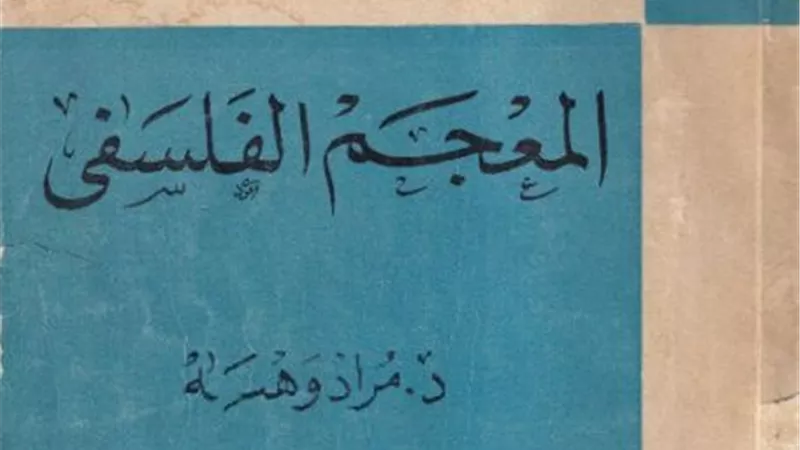 المعجم الفلسفى
د. مراد وهبه